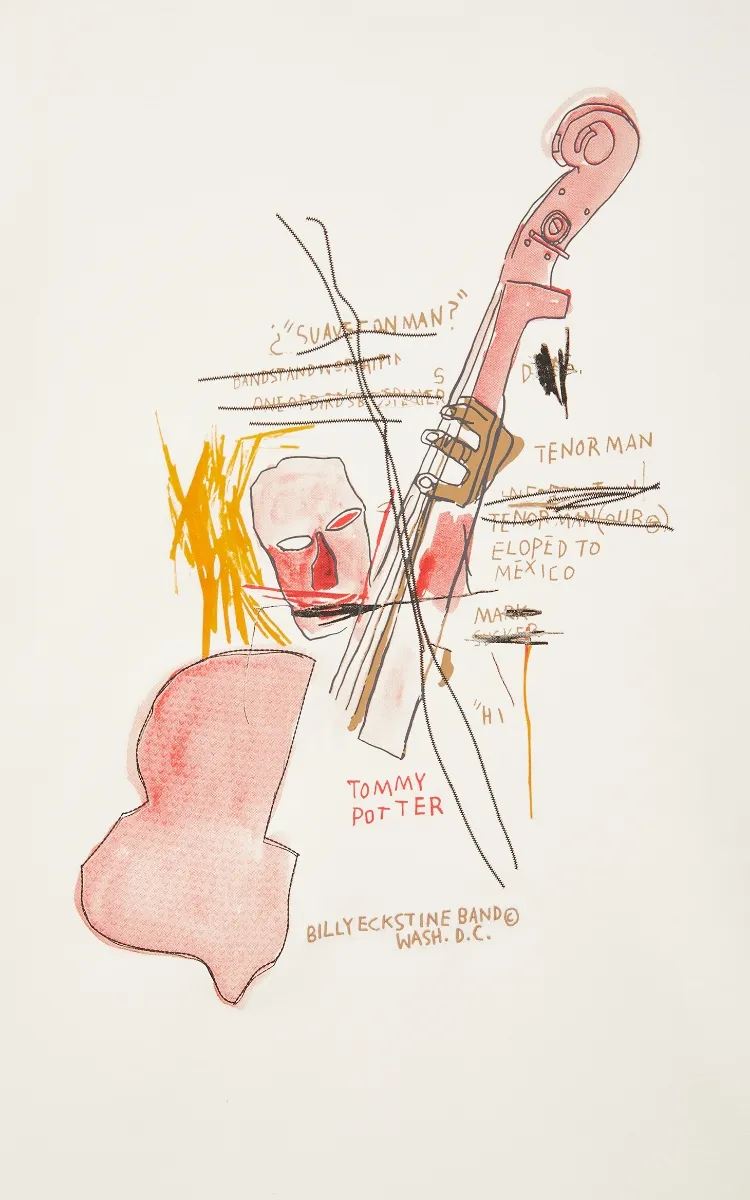 ¿"SUAVE TON MAN?"
BANDSTAND WORSHIPIN
S
ONE OF BIRD'S
TENOR MAN
TENOR MAN (OUR ®)
ELOPED TO
MEXICO
MARK
"HI
TOMMY
POTTER
BILLY ECKSTINE BAND©
WASH. D.C.